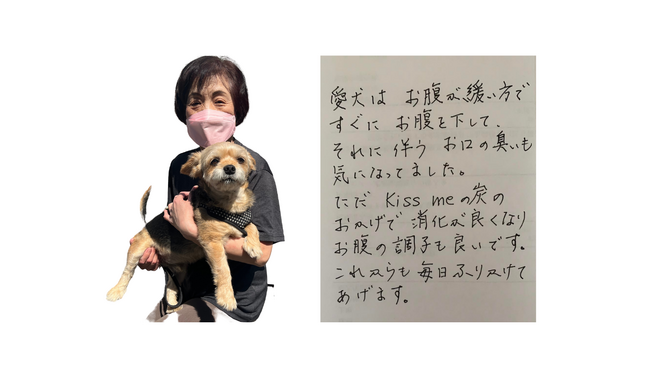 愛犬は お腹が緩い方で
すぐに お腹を下して、
それに伴う お口の臭いも
気になってました。
ただ Kiss meの炭の
おかげで 消化が良くなり
お腹の調子も良いです。
これからも 毎日ふりかけて
あげます。